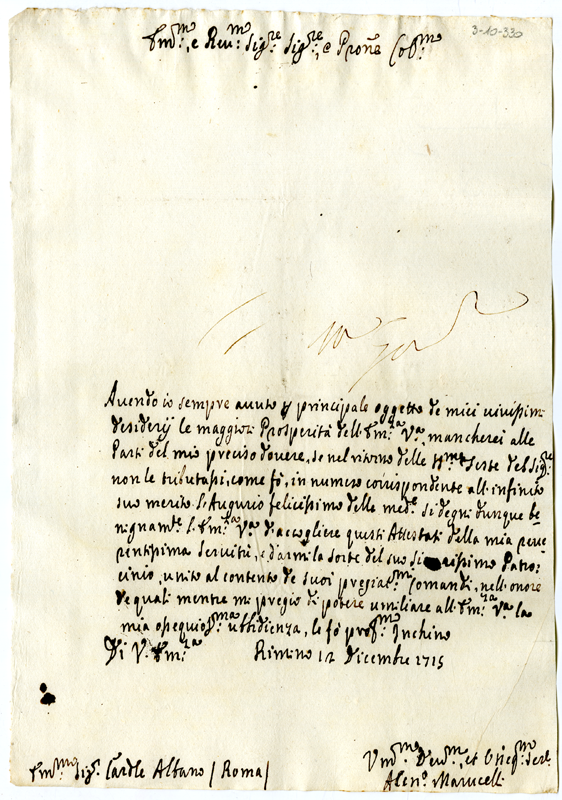 3-10-330
Em:mo, e Reu:mo Sig:re Sig:re, e Prone Col:mo
Auendo io sempre auuto p principale oggetto de miei uiuissimi
desiderij le maggiori Prosperità dell'Em:za Va, mancherei alle
Parti del mio preciso douere, se nel ritorno delle SSme Feste del Sig:re
non le tributassi, come fò, in numero corrispondente all'infinito
suo merito l'Augurio felicissimo delle mede. Si degni dunque be¬
nignamte l'Em:za Va d'accogliere questi Attestati della mia reue¬
rentissima Seruitù, e darmi la sorte del suo Patro¬
cinio, unito al contento de suoi pregiat:mi Comandi, nell'onore
de quali mentre mi pregio di potere umiliare all'Em:za Va la
mia ossequios:ma ubbidienza, le fò prof:mo Inchino
Di V. Em:za Rimino 12 Dicembre 1715
Vm:mo Deu:mo, et Osseq:mo Serl.
Em:mo Sig:r Cardle Albano / Roma /
Alesno Marucelli